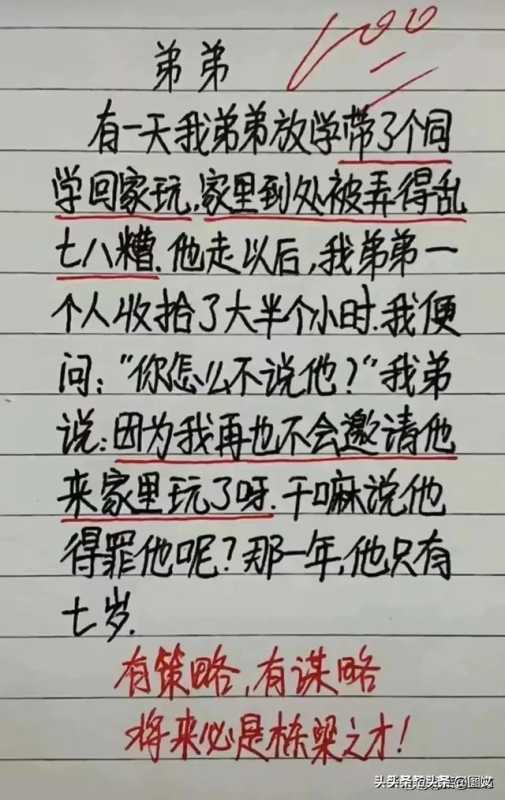 100
弟弟
有一天我弟弟放学带了个同
学回家玩.家里到处被弄得乱
七八糟.他走以后,我弟弟一
个人收拾了大半个小时.我便
问:“你怎么不说他?”我弟
说:因为我再也不会邀请他
来家里玩了呀.干嘛说他
得罪他呢?那一年,他只有
七岁.
有策略,有谋略
将来必是栋梁之才!